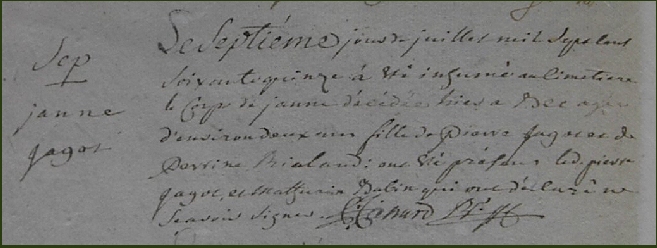 Sep
janne
Jagot
Le Septiéme jour de juillet mil Sept Cent
Soixante quinze à été inhumé au Cimetiere
le Corps de janne décédée hier agée
d'environ deux ans fille de Pierre Jagot et de
Perrine Rialand; ont été présens led. pierre
Jagot, et Mathurin Babin qui ont déclaré ne
Scavoir Signer